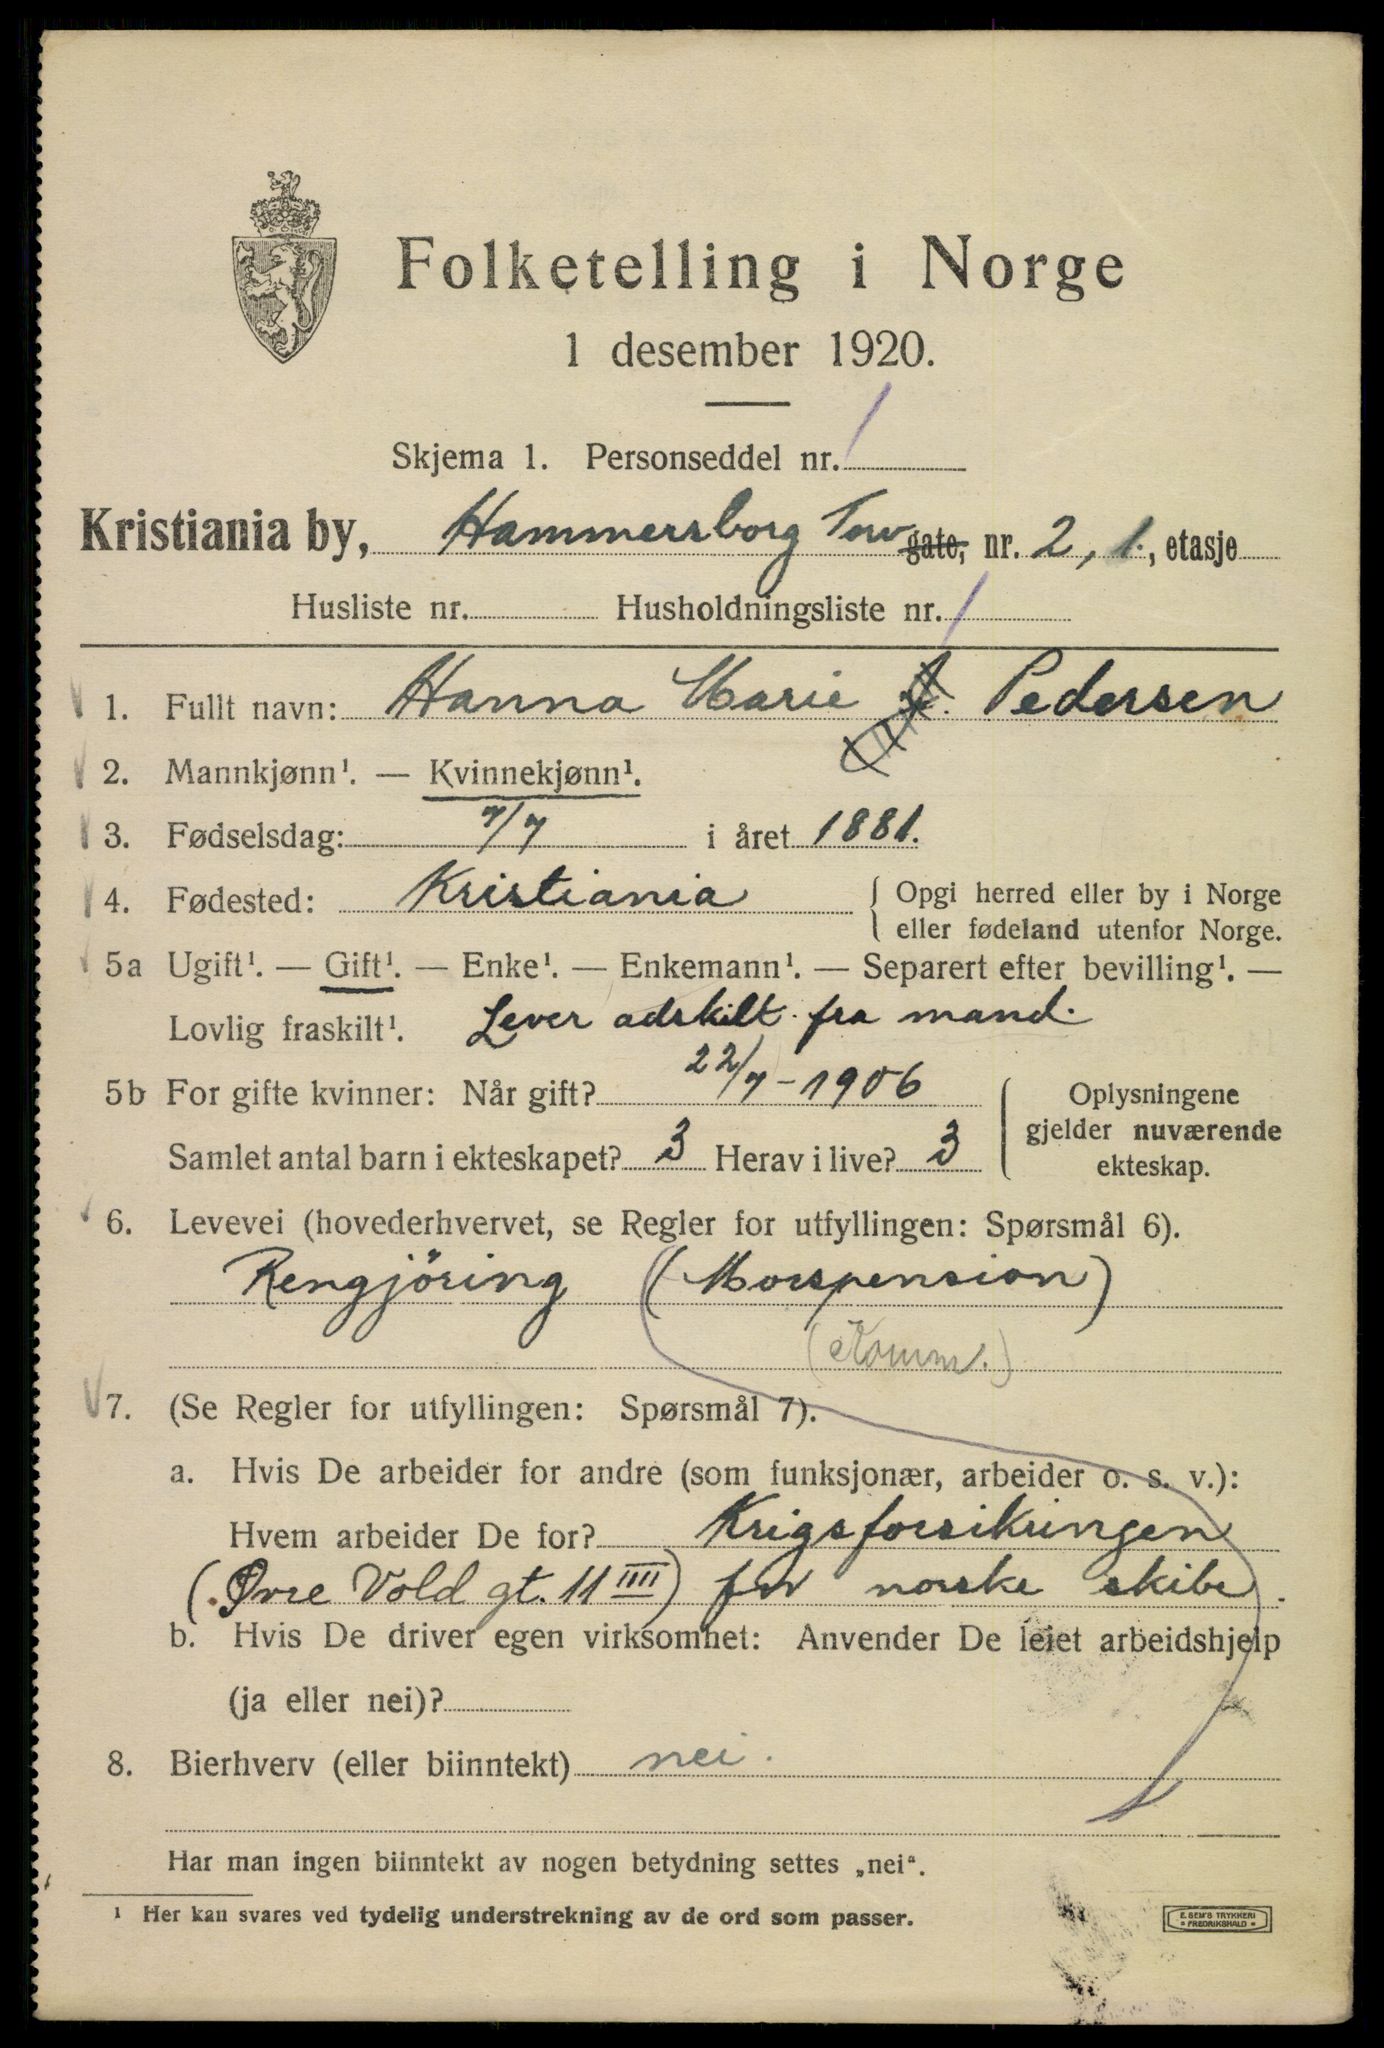 Folketelling i Norge
1 desember 1920.
Skjema 1. Personseddel nr. 1
Kristiania by, Hammersborg Torv gate, nr. 2, 1., etasje
Husliste nr. Husholdningsliste nr. 1
1. Fullt navn: Hanna Marie Pedersen
2. Mannkjønn¹. — Kvinnekjønn¹.
3. Fødselsdag: 7/7 i året 1881.
4. Fødested: Kristiania { Opgi herred eller by i Norge
eller fødeland utenfor Norge.
5a Ugift¹. — Gift¹. — Enke¹. — Enkemann¹. — Separert efter bevilling¹. —
Lovlig fraskilt¹. Lever adskilt fra mand.
5b For gifte kvinner: Når gift? 22/7-1906
Samlet antal barn i ekteskapet? 3 Herav i live? 3
Oplysningene
gjelder nuværende
ekteskap.
6. Levevei (hovederhvervet, se Regler for utfyllingen: Spørsmål 6).
Rengjöring (Morspension)
(Komm.)
7. (Se Regler for utfyllingen: Spørsmål 7).
a. Hvis De arbeider for andre (som funksjonær, arbeider o. s. v.):
Hvem arbeider De for? Krigsforsikringen
(Øvre Vold gt. 11 IIII) for norske skibe.
b. Hvis De driver egen virksomhet: Anvender De leiet arbeidshjelp
(ja eller nei)?
8. Bierhverv (eller biinntekt) nei.
Har man ingen biinntekt av nogen betydning settes „nei“.
¹ Her kan svares ved tydelig understrekning av de ord som passer.
E. SEM'S TRYKKERI
* FREDRIKSHALD *